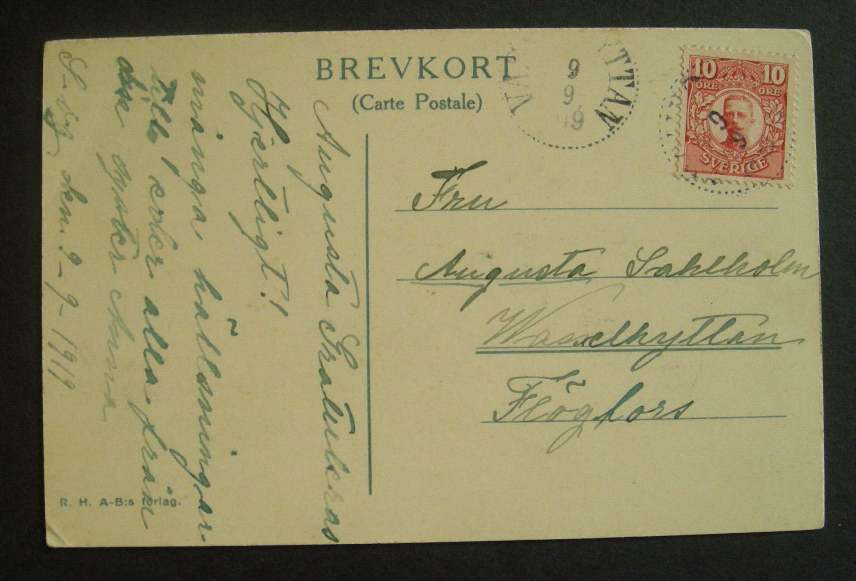 BREVKORT
(Carte Postale)
10 10
ÖRE ÖRE
SVERIGE
9
9
19
TTAN
Fru
Augusta Sahlholm
Flögfors
Augusta Gratuleras
Hjertligt!
många hälsningar
till eder alla från
syster Anna
den 9-9-1919
R. H. A-B:s förlag.